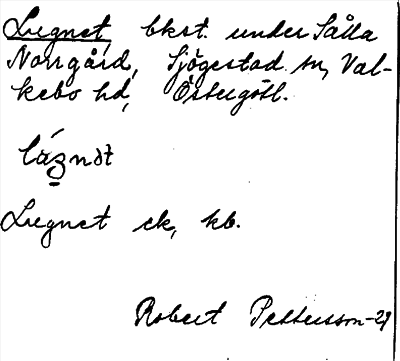 Lugnet, bkst. under Sålla
Norrgård, Sjögestad sn, Val-
kebo hd, Östergötl.
Lugnet ek, kb.
Robert Pettersson -29